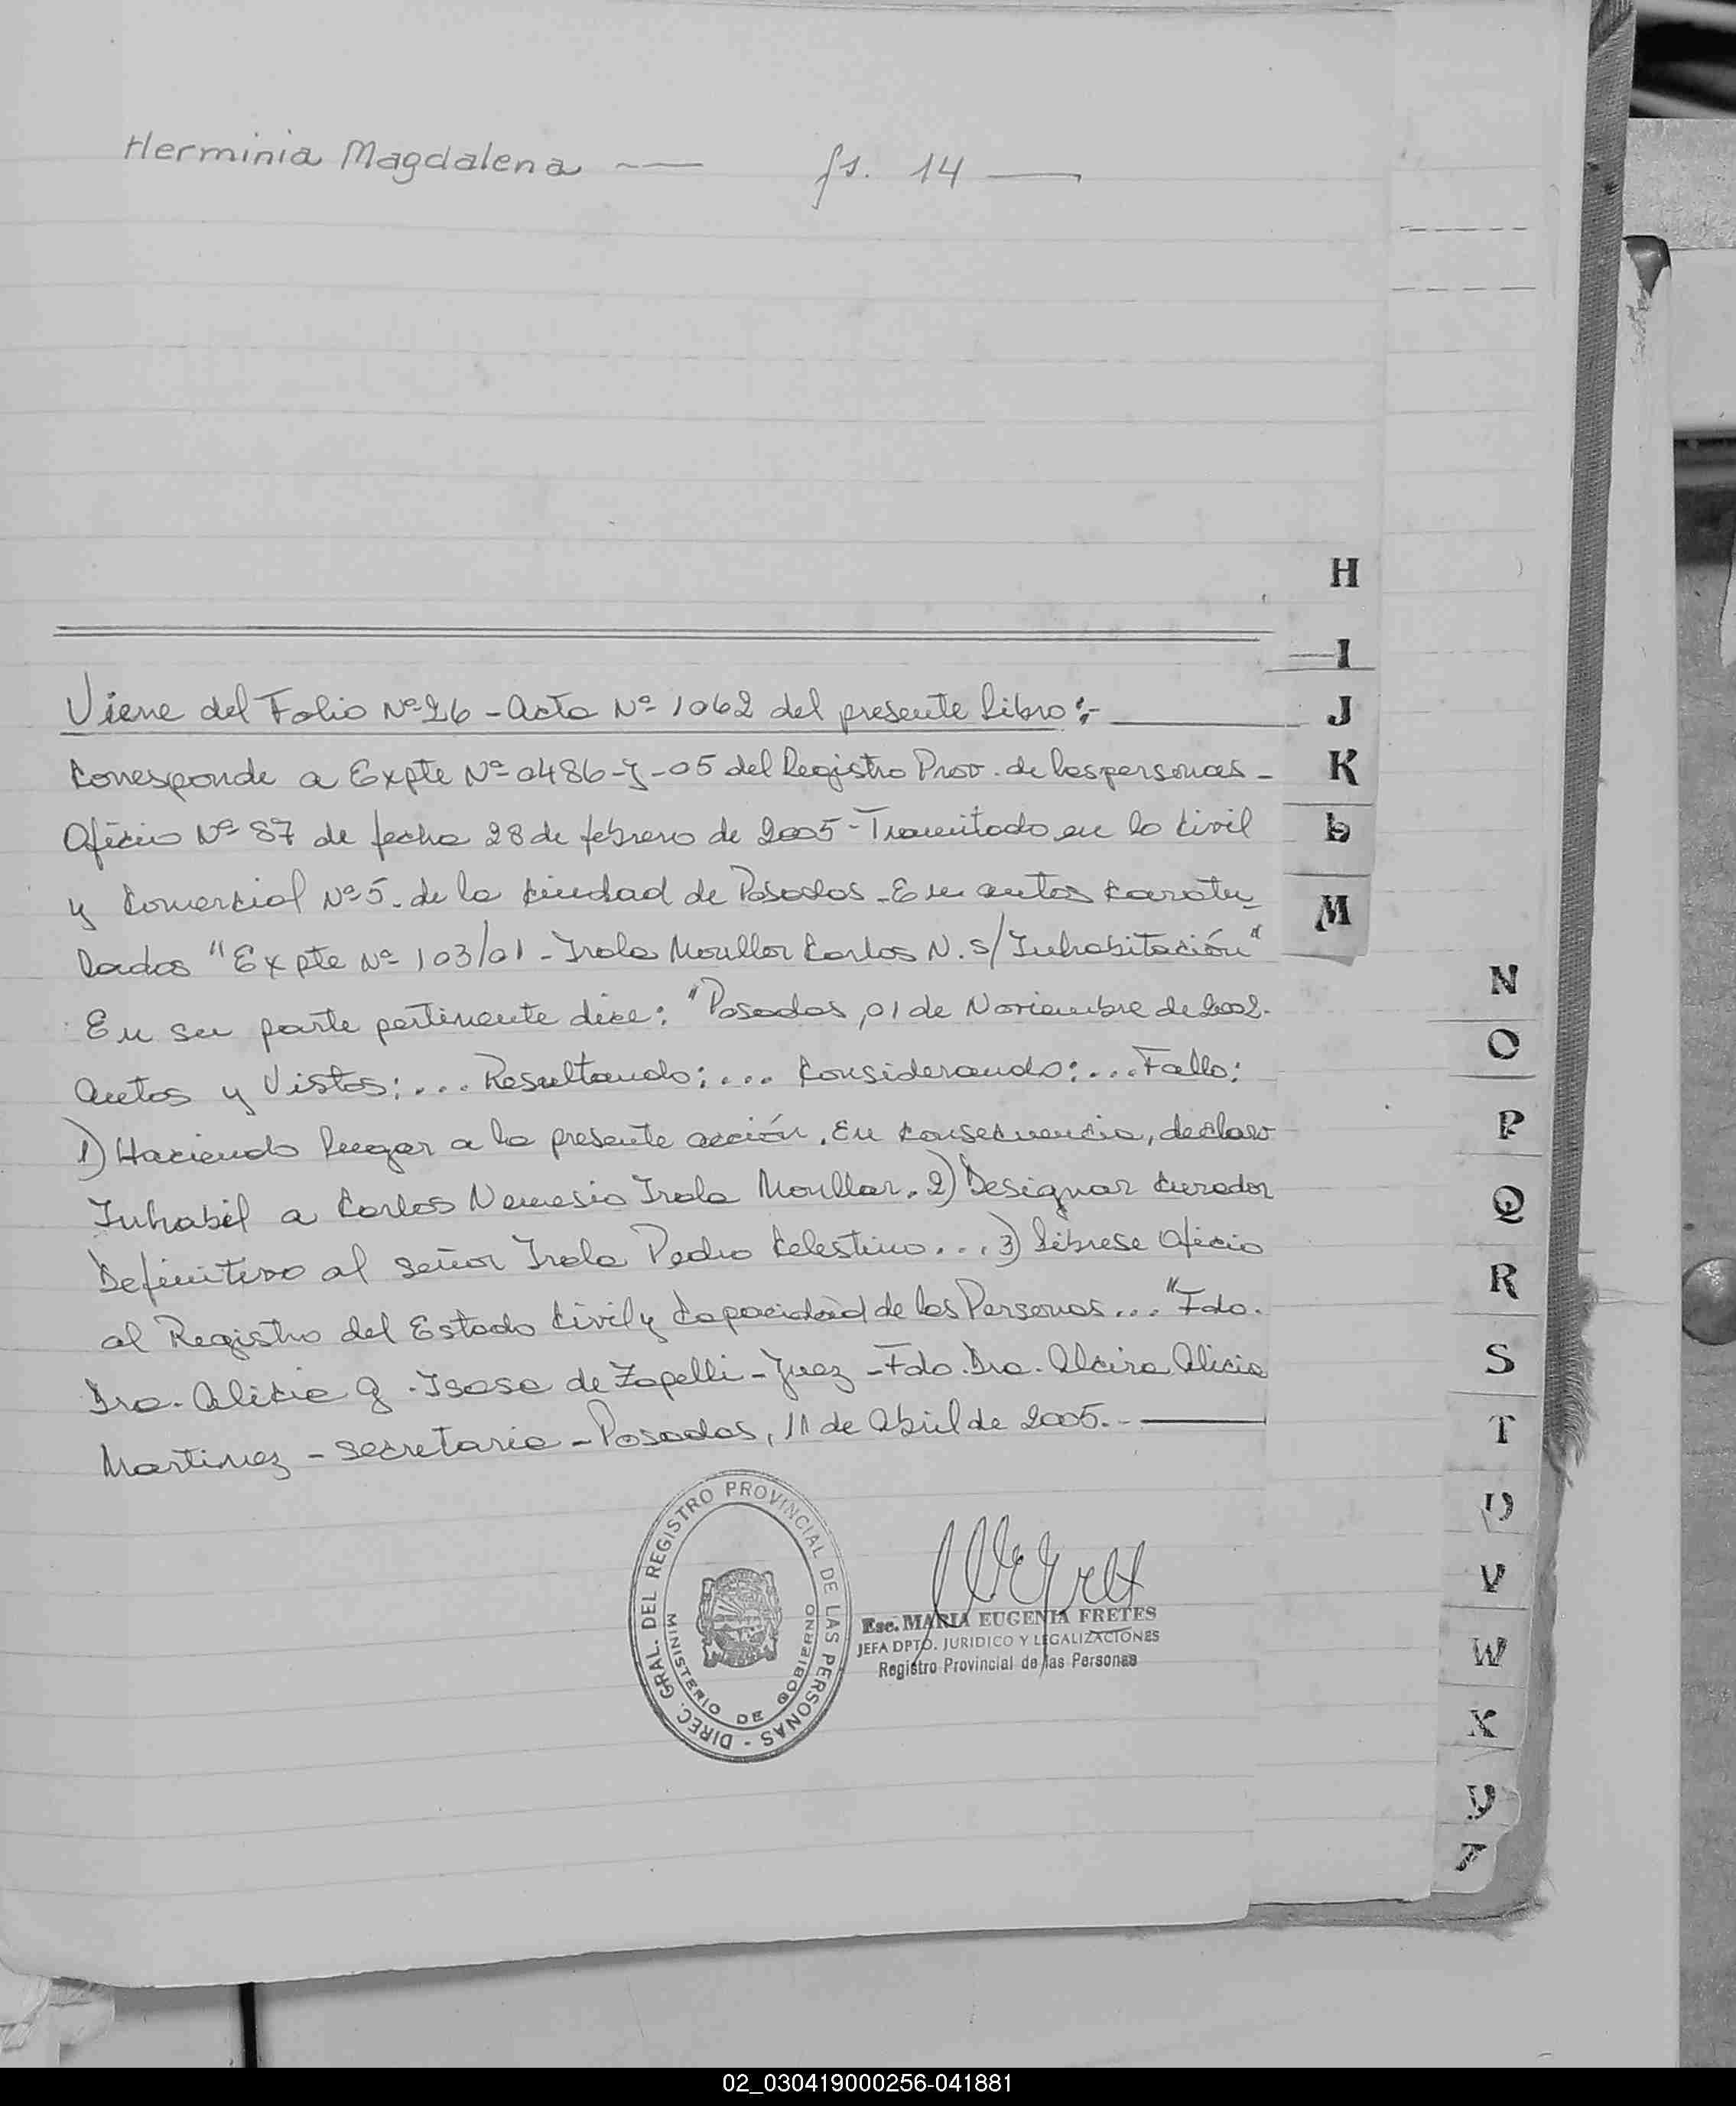 Herminia Magdalena — fs. 14 —
H
I
Viene del Folio Nº 26 - Acta Nº 1062 del presente Libro:-
J
Corresponde a Expte Nº 0486-J-05 del Registro Prov. de las personas -
K
Oficio Nº 87 de fecha 28 de febrero de 2005 - Tramitado en lo Civil
L
y Comercial Nº 5. de la Ciudad de Posadas - En autos Caratu-
M
lados "Expte Nº 103/01 - Irala Moullor Carlos N. s/ Inhabitación"
N
En su parte pertinente dice: "Posadas, 01 de Noviembre de 2002.
O
Autos y Vistos:... Resultando:... Considerando:... Fallo:
1) Haciendo lugar a la presente acción. En consecuencia, declaro
P
Inhabil a Carlos Nemesio Irala Moullar. 2) Designar Curador
Q
Definitivo al señor Irala Pedro Celestino... 3) Líbrese Oficio
R
al Registro del Estado Civil y Capacidad de las Personas..." Fdo.
S
Dra. Alicia G. Isasa de Zapelli - Juez - Fdo. Dra. Alcira Alicia
T
Martinez - Secretaria - Posadas, 11 de Abril de 2005. -
U
V
W
X
Y
Z
DIREC. GRAL. DEL REGISTRO PROVINCIAL DE LAS PERSONAS -
MINISTERIO DE GOBIERNO
Esc. MARIA EUGENIA FRETES
JEFA DPTO. JURIDICO Y LEGALIZACIONES
Registro Provincial de las Personas
02_030419000256-041881